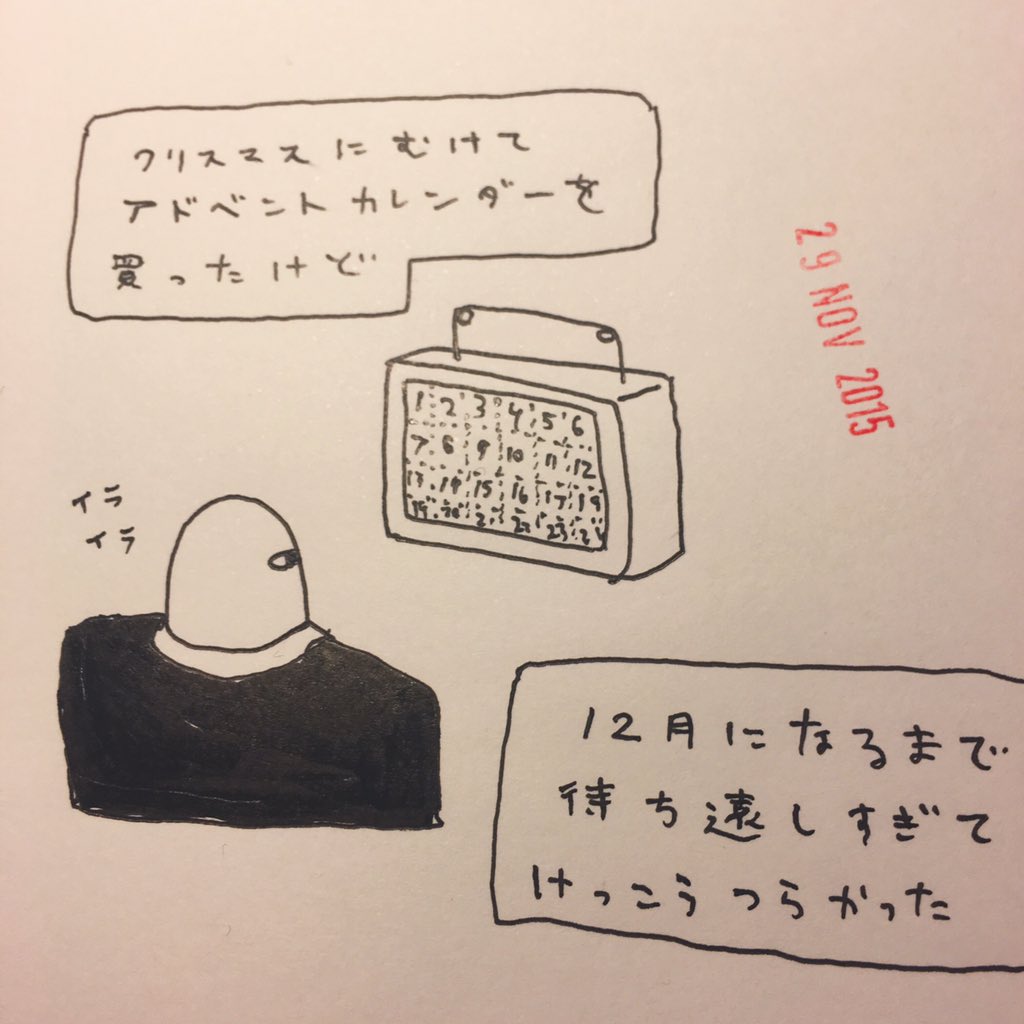 クリスマスにむけて
アドベントカレンダーを
買ったけど
29 NOV 2015
1 2 3 4 5 6
7 8 9 10 11 12
13 14 15 16 17 19
19 20 21 22 23 24
イラ
イラ
12月になるまで
待ち遠しすぎて
けっこうつらかった